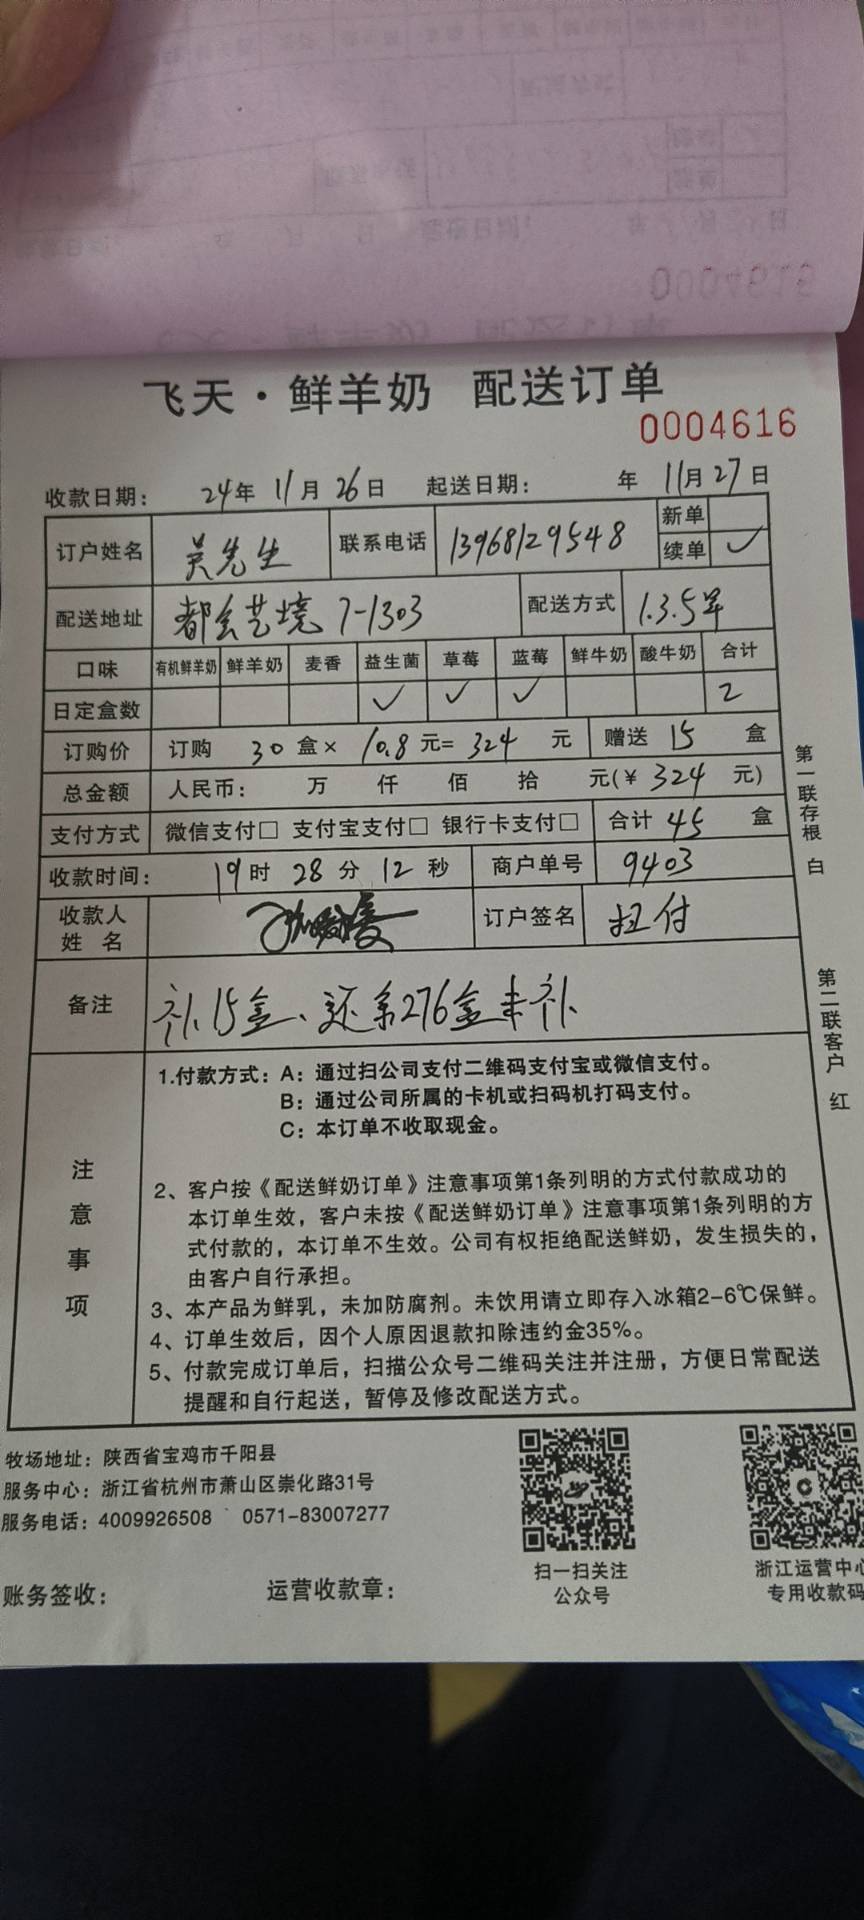 0004616
飞天·鲜羊奶 配送订单
0004616
收款日期： 24年 11月 26日 起送日期： 年 11月 27日
订户姓名 吴先生 联系电话 13968129548 新单
续单 ✓
配送地址 都会艺境 7-1303 配送方式 1.3.5早
口味 有机鲜羊奶 鲜羊奶 麦香 益生菌 草莓 蓝莓 鲜牛奶 酸牛奶 合计
日定盒数 ✓ ✓ ✓ 2
订购价 订购 30 盒× 10.8 元= 324 元 赠送 15 盒
总金额 人民币： 万 仟 佰 拾 元(¥ 324 元)
支付方式 微信支付□ 支付宝支付□ 银行卡支付□ 合计 45 盒
收款时间： 19时 28分 12秒 商户单号 9403
收款人
姓 名
订户签名 扫付
备注 补15盒、还余276盒未补
注意事项
1.付款方式：A：通过扫公司支付二维码支付宝或微信支付。
B：通过公司所属的卡机或扫码机打码支付。
C：本订单不收取现金。
2、客户按《配送鲜奶订单》注意事项第1条列明的方式付款成功的
本订单生效，客户未按《配送鲜奶订单》注意事项第1条列明的方
式付款的，本订单不生效。公司有权拒绝配送鲜奶，发生损失的，
由客户自行承担。
3、本产品为鲜乳，未加防腐剂。未饮用请立即存入冰箱2-6℃保鲜。
4、订单生效后，因个人原因退款扣除违约金35%。
5、付款完成订单后，扫描公众号二维码关注并注册，方便日常配送
提醒和自行起送，暂停及修改配送方式。
第一联存根 白
第二联客户 红
牧场地址：陕西省宝鸡市千阳县
服务中心：浙江省杭州市萧山区崇化路31号
服务电话：4009926508 0571-83007277
扫一扫关注
公众号
浙江运营中心
专用收款码
账务签收： 运营收款章：